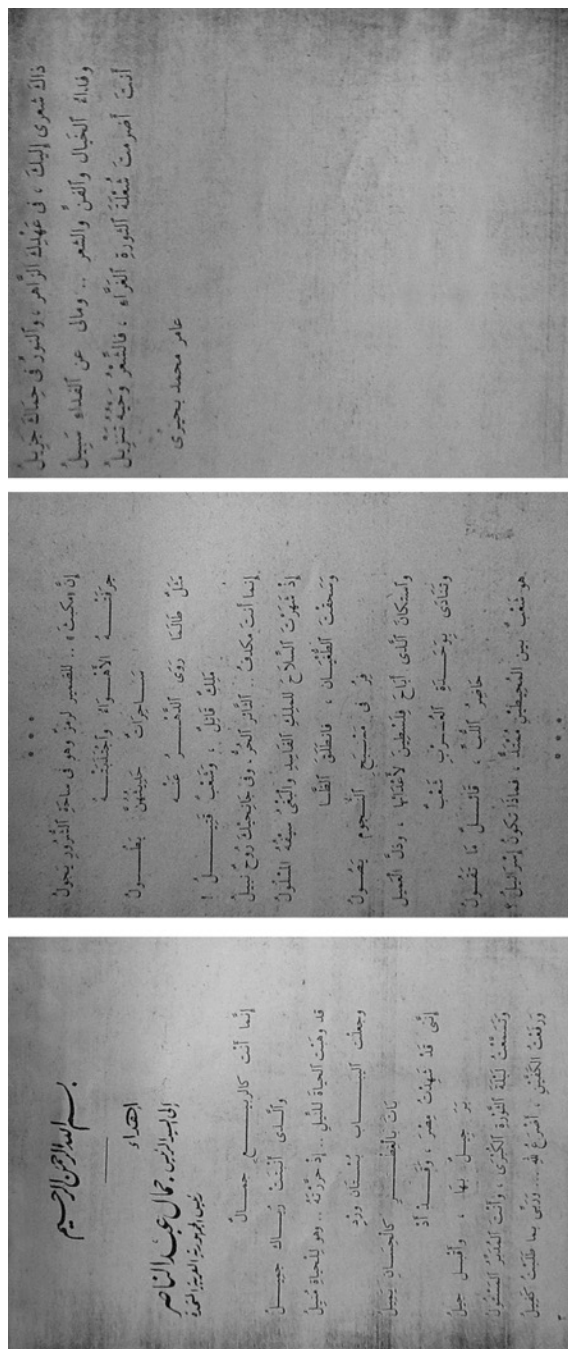 بسم الله الرحمن الرحيم
إهداء
إلى السيد الرئيس . جمال عبد الناصر
رئيس الجمهورية العربية المتحدة
إِنَّما أنتَ كالربيــعِ جمـالٌ
والَّـذى أَنْبَتَتْ رُبـاكَ جميـلُ
قد وهبْتَ الحياةَ للنيلِ .. إذ حرَّرْتَهُ .. وهو للحياةِ مُنيلُ
وجعلْتَ اليَبــابَ بُسْتَان وَرْدٍ
باتَ بالعِطْــرِ كالجِنـانِ يسِيلُ
إِنَّنى قَدْ شَهِدْتُ مِصْرَ ، وَقَــدْ أَدْ
بَرَ جيــلٌ بها ، وأَقبــلَ جيلُ
وَتَسَمَّعْتُ لَيْلَةَ الثَّوْرَةِ الكُبْرَى ، وأَنْتَ المُدَبِّرُ المسْئُولُ
وَرَفَعْتُ الكَفَّيْنِ ، أَضْرَعُ للهِ ... وَرَبِّى بما طَلَبْتُ كَفِيلُ
٣
* * *
إِنَّ «مكبث» .. للضمير لرمزٌ وهو فى ساحَةِ الشُّرُورِ يَجولُ
حرَّكَتْــهُ الأَهْــوَاءُ وَاجْتَذَبَتْــهُ
سَــاحِرَاتٌ حَدِيثُهُنَّ يَطُــولُ
مَثَلٌ طَالَمَا رَوَى الدَّهْــرُ عَنْه
مَلِكٌ قاتِلٌ ، وَشَعْبٌ قَتِيــلُ !
إِنما أنتَ مكدفُ .. الثائر الحُرُّ ، وفى جَانِحيكَ رُوحٌ نَبِيلُ
إِذ شَهَرْتَ السِّلاَحَ للمَلِكِ الفَاسِدِ والبَغْىُ سيْفُهُ المَسْلُولُ
وَسَحَقْتَ الطُّغْيَــان ، فانطلَقَ الظَّــا
فِرُ فى مَسْبَحِ النُّجومِ يَصُولُ
واسْتَكَانَ الَّذى أَباحَ فِلَسْطِينَ لأَعْدَائِها ، وذَلَّ العَميلُ
وتَنَادَى بِوَحْــدَةِ العُــرْبِ شَعْبٌ
حَاضِرُ اللُّبِّ ، قَائِــلٌ مَا تَقُــولُ
هو شَعْبٌ بينَ المحيطيْنِ مُمْتَدُّ ، فماذَا تَكونُ إِسْرَائِيلُ ؟
ذاكَ شعرى إليكَ ، فى عَهْدِكَ الزَّاهرِ ، والنورُ فى حِمَاكَ جَزِيلُ
وفداءُ الخَيالِ والفنِّ والشعرِ .. ومالى عن الفداءِ سَبِيلُ
أنتَ أضرمتَ شُعْلَةَ الثورةِ الغَرَّاءِ ، فالشِّعْرُ وَحْيُهُ تَنْزِيلُ
عامر محمد بحيرى